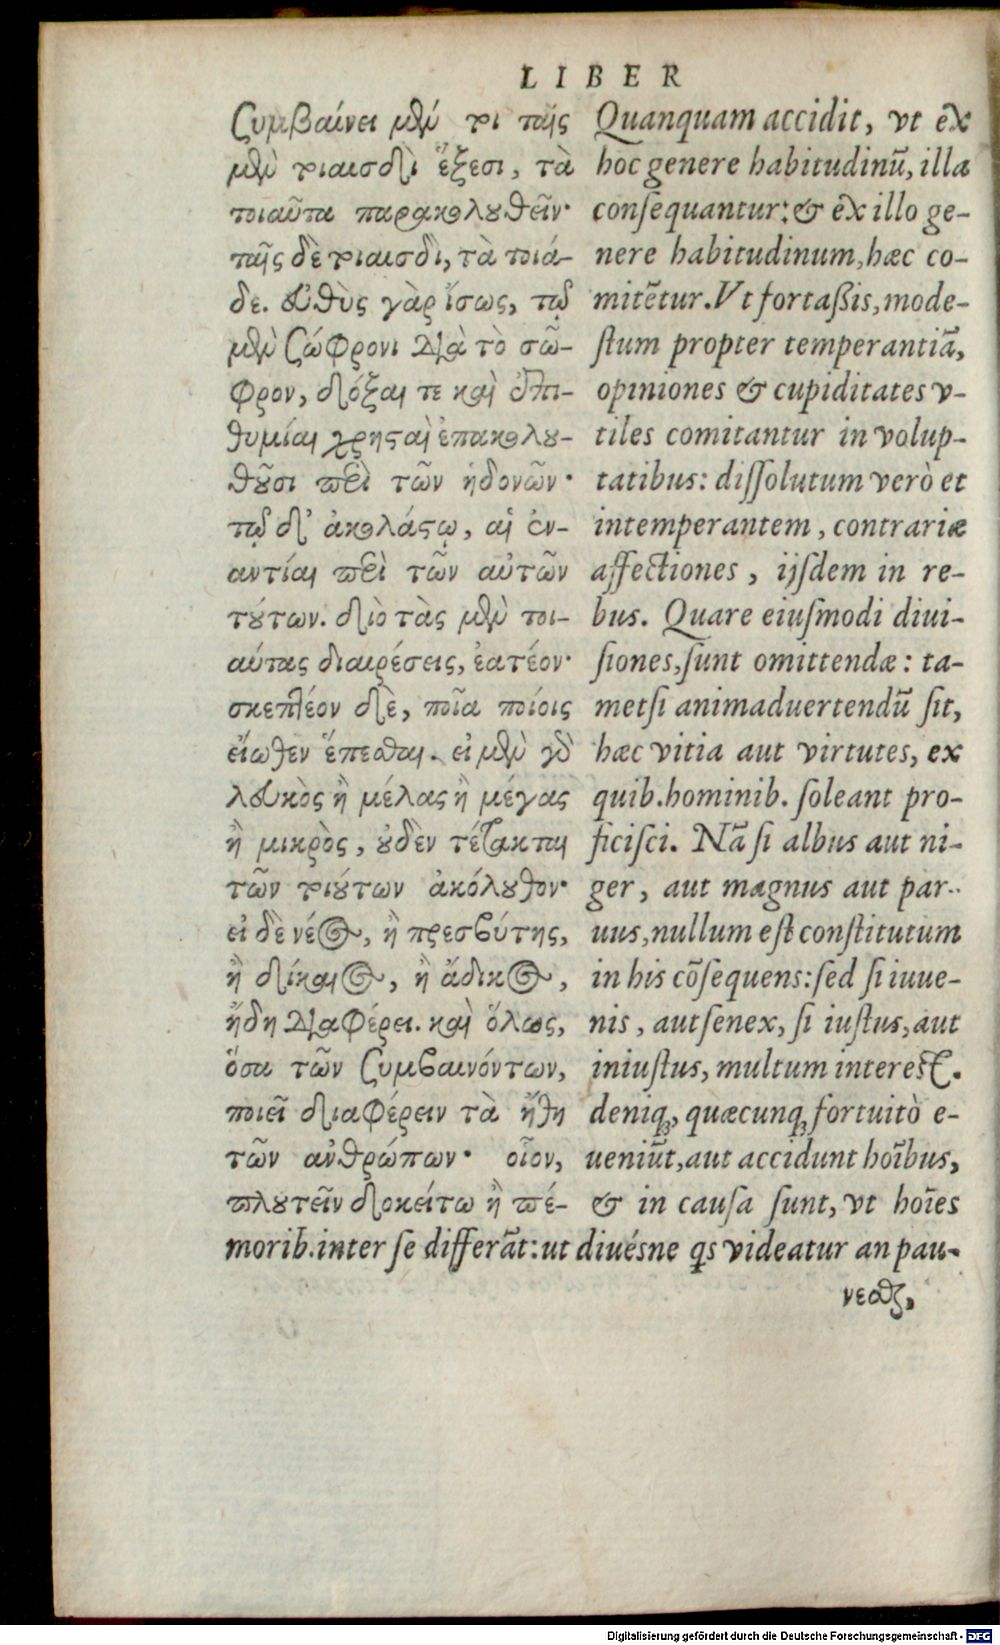 LIBER
Συμβαίνει μέν τοι ταῖς
μὲν τοιαισδὶ ἕξεσι, τὰ
τοιαῦτα παρακολουθεῖν·
ταῖς δὲ τοιαισδὶ, τὰ τοιά-
δε. εὐθὺς γὰρ ἴσως, τῷ
μὲν σώφρονι διὰ τὸ σῶ-
φρον, δόξαι τε καὶ ἐπι-
θυμίαι χρησταὶ ἐπακολου-
θοῦσι περὶ τῶν ἡδονῶν·
τῷ δ' ἀκολάστῳ, αἱ ἐν-
αντίαι περὶ τῶν αὐτῶν
τούτων. διὸ τὰς μὲν τοι-
αύτας διαιρέσεις, ἐατέον·
σκεπτέον δὲ, ποῖα ποίοις
εἴωθεν ἕπεσθαι. εἰ μὲν γὸ
λευκὸς ἢ μέλας ἢ μέγας
ἢ μικρὸς, οὐδὲν τέτακται
τῶν τοιούτων ἀκόλουθον·
εἰ δὲ νέος, ἢ πρεσβύτης,
ἢ δίκαιος, ἢ ἄδικος,
ἤδη διαφέρει. καὶ ὅλως,
ὅσα τῶν συμβαινόντων,
ποιεῖ διαφέρειν τὰ ἤθη
τῶν ἀνθρώπων· οἷον,
πλουτεῖν δοκείτω ἢ πέ-
Quanquam accidit, vt ēx
hoc genere habitudinū, illa
conſequantur: & ēx illo ge-
nere habitudinum, hæc co-
mitētur. Vt fortaßis, mode-
ſtum propter temperantiā,
opiniones & cupiditates v-
tiles comitantur in volup-
tatibus: diſſolutum verò et
intemperantem, contrariæ
affectiones, ijſdem in re-
bus. Quare eiuſmodi diui-
ſiones, ſunt omittendæ: ta-
metſi animaduertendū ſit,
hæc vitia aut virtutes, ex
quib. hominib. ſoleant pro-
ficiſci. Nā ſi albus aut ni-
ger, aut magnus aut par-
uus, nullum eſt conſtitutum
in his cōſequens: ſed ſi iuue-
nis, aut ſenex, ſi iuſtus, aut
iniuſtus, multum intereſt.
deniq;, quæcunq; fortuitò e-
ueniūt, aut accidunt hoībus,
& in cauſa ſunt, vt hoīes
morib. inter ſe differāt: ut diuésne qs videatur an pau-
νεσθαι,
Digitalisierung gefördert durch die Deutsche Forschungsgemeinschaft - DFG